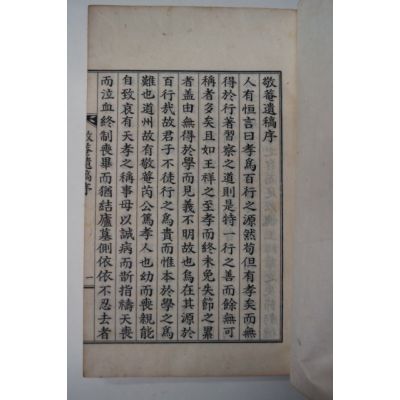 敬菴遺稿序
人有恒言曰孝爲百行之源然苟但有孝矣而無
得於行著習察之道則是特一行之善而餘無可
稱者多矣且如王祥之至孝而終未免失節之累
者蓋由無所得於學而見義不明故也烏在其源於
百行哉故君子不徒行之爲貴而惟本於學之爲
難也道州故有敬菴芮公篤孝人也幼而喪親能
自致哀有天孝之稱事母以誠病而斷指禱天喪
而泣血終制喪畢而猶結廬墓側依依不忍去者
敬菴遺稿序
一